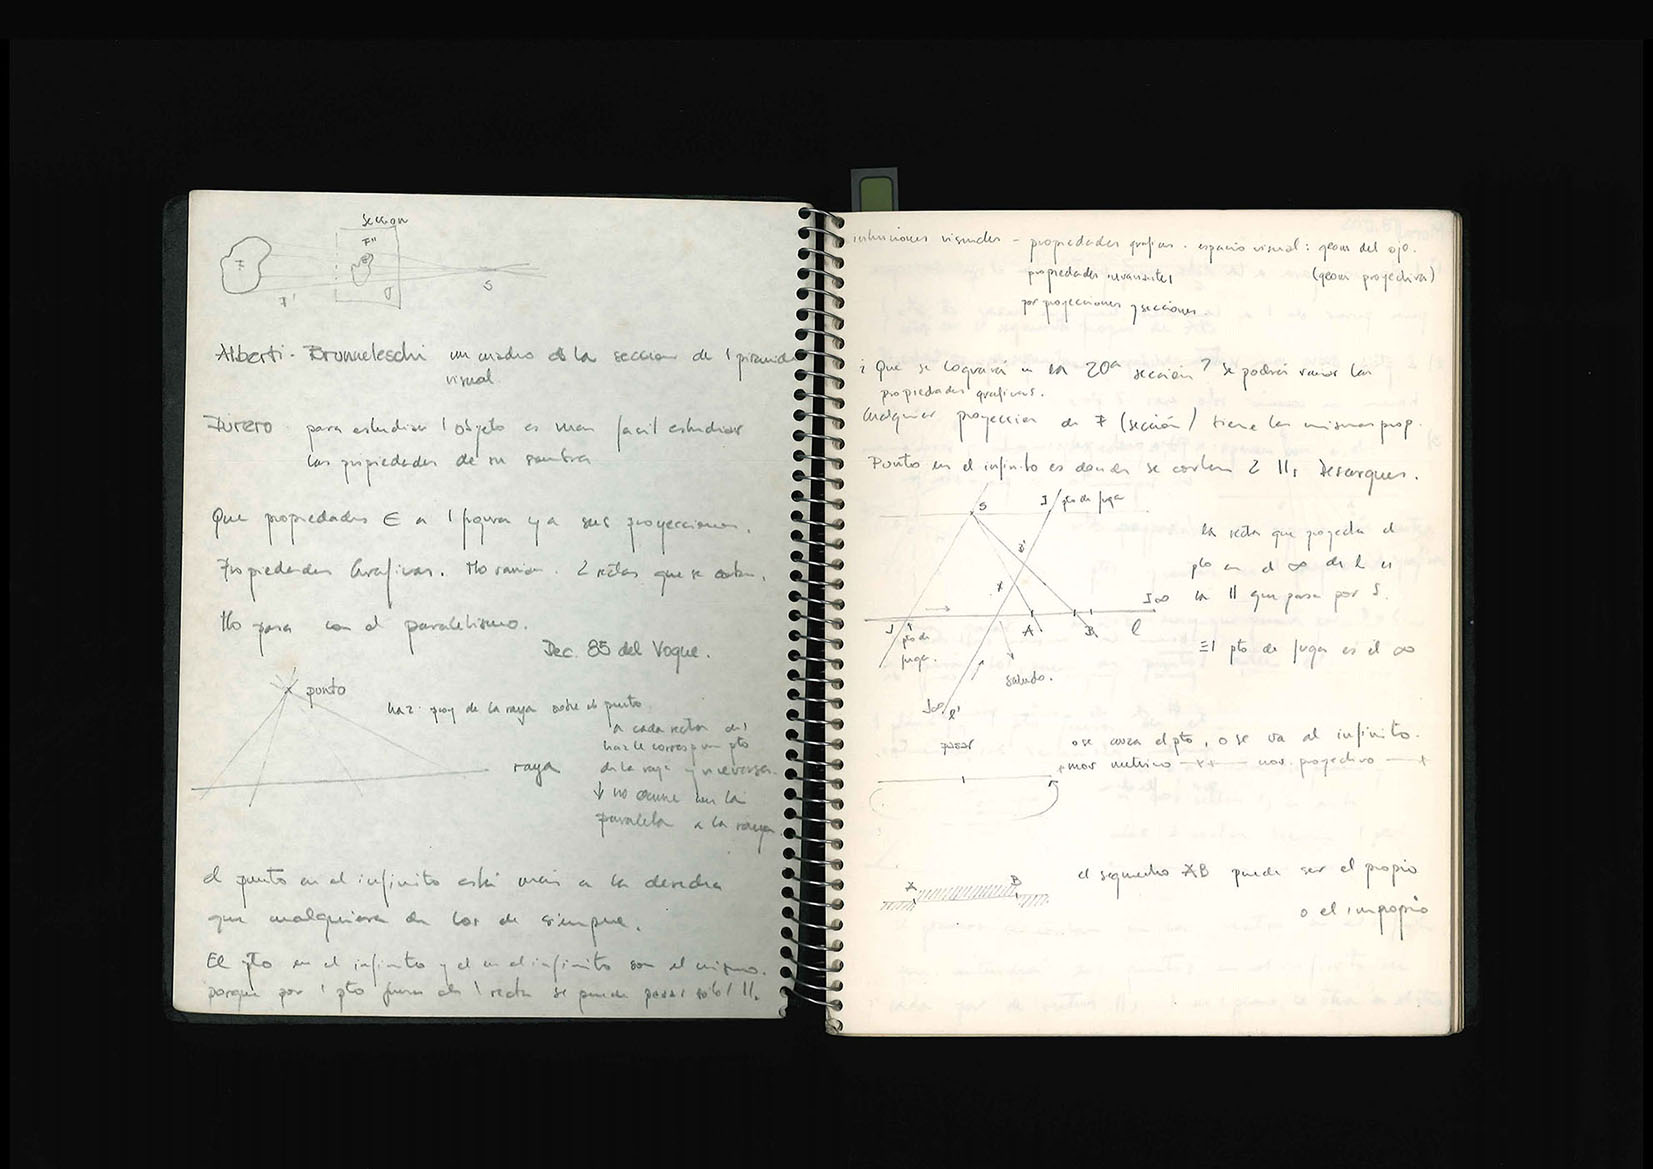 Sección
F
F''
F'
S
Alberti - Brunneleschi un cuadro es la seccion de 1 piramide
visual.
Durero para estudiar 1 objeto es mas facil estudiar
las propiedades de su sombra
Que propiedades ∈ a 1 figura y a sus proyecciones.
Propiedades Graficas. No varian. 2 rectas que se cortan.
No pasa con el paralelismo.
Dec. 85 del Vogue.
punto
haz: proy de la raya sobre el punto.
a cada recta del
haz le corresp un pto
de la raya y viceversa.
↓ no ocurre con la
paralela a la raya
raya
el punto en el infinito está más a la derecha
que cualquiera de los de siempre.
El pto en el infinito y el en el infinito son el mismo.
porque por 1 pto fuera de 1 recta se puede pasar sólo 1 //.
visuales - propiedades graficas. espacio visual: geom del ojo.
propiedades invariantes (geom proyectiva)
por proyecciones y secciones.
¿Que se logrará en la 20ª sección? se podrá variar las
propiedades graficas.
Cualquier proyección de F (sección) tiene las mismas prop.
Punto en el infinito es donde se cortan 2 //s Desargues.
S
I pto de fuga
la recta que proyecta el
pto en el ∞ de l es
la // que pasa por S.
J∞
J
pto de
fuga.
A
B
l
El pto de fuga es el ∞
saludo.
I∞ l'
pasar
o se cruza el pto, o se va al infinito.
mov metrico mov. proyectivo
A
B
el segmento AB puede ser el propio
o el impropio